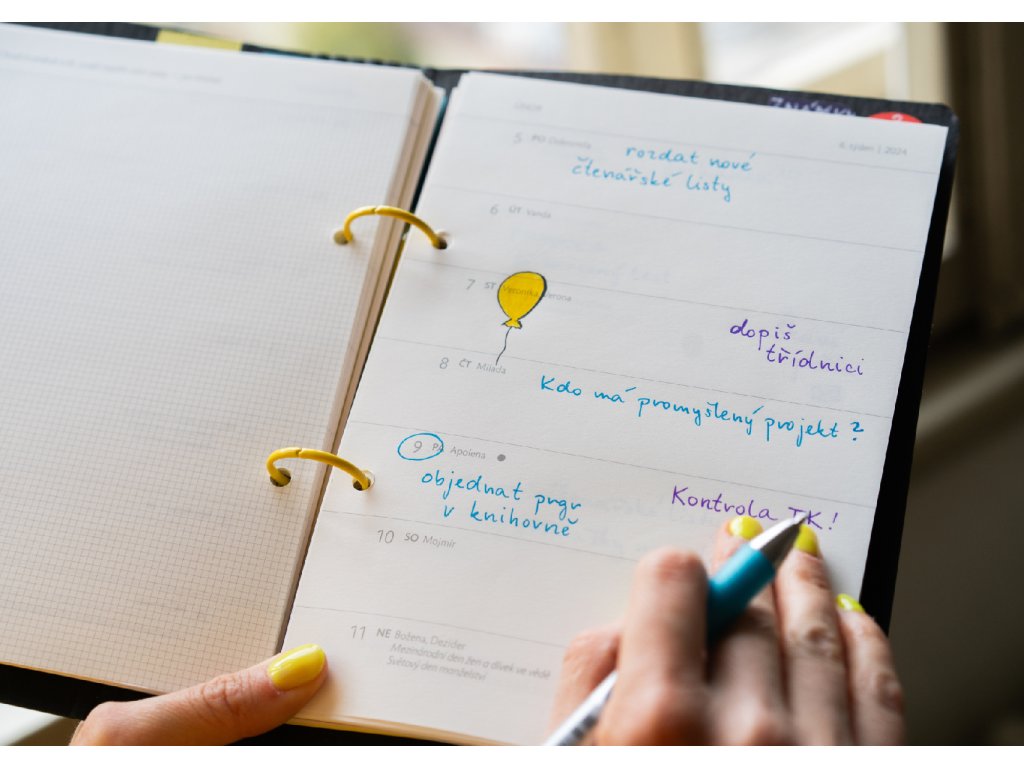 ÚNOR
6. týden | 2024
5 PO Dobromila
rozdat nové
čtenářské listy
6 ÚT Vanda
7 ST Veronika, Verona
dopiš
třídnici
8 ČT Milada
Kdo má promyšlený projekt?
9 PÁ Apolena
objednat prgr
v knihovně
Kontrola TK!
10 SO Mojmír
11 NE Božena, Dezider
Mezinárodní den žen a dívek ve vědě
Světový den manželství